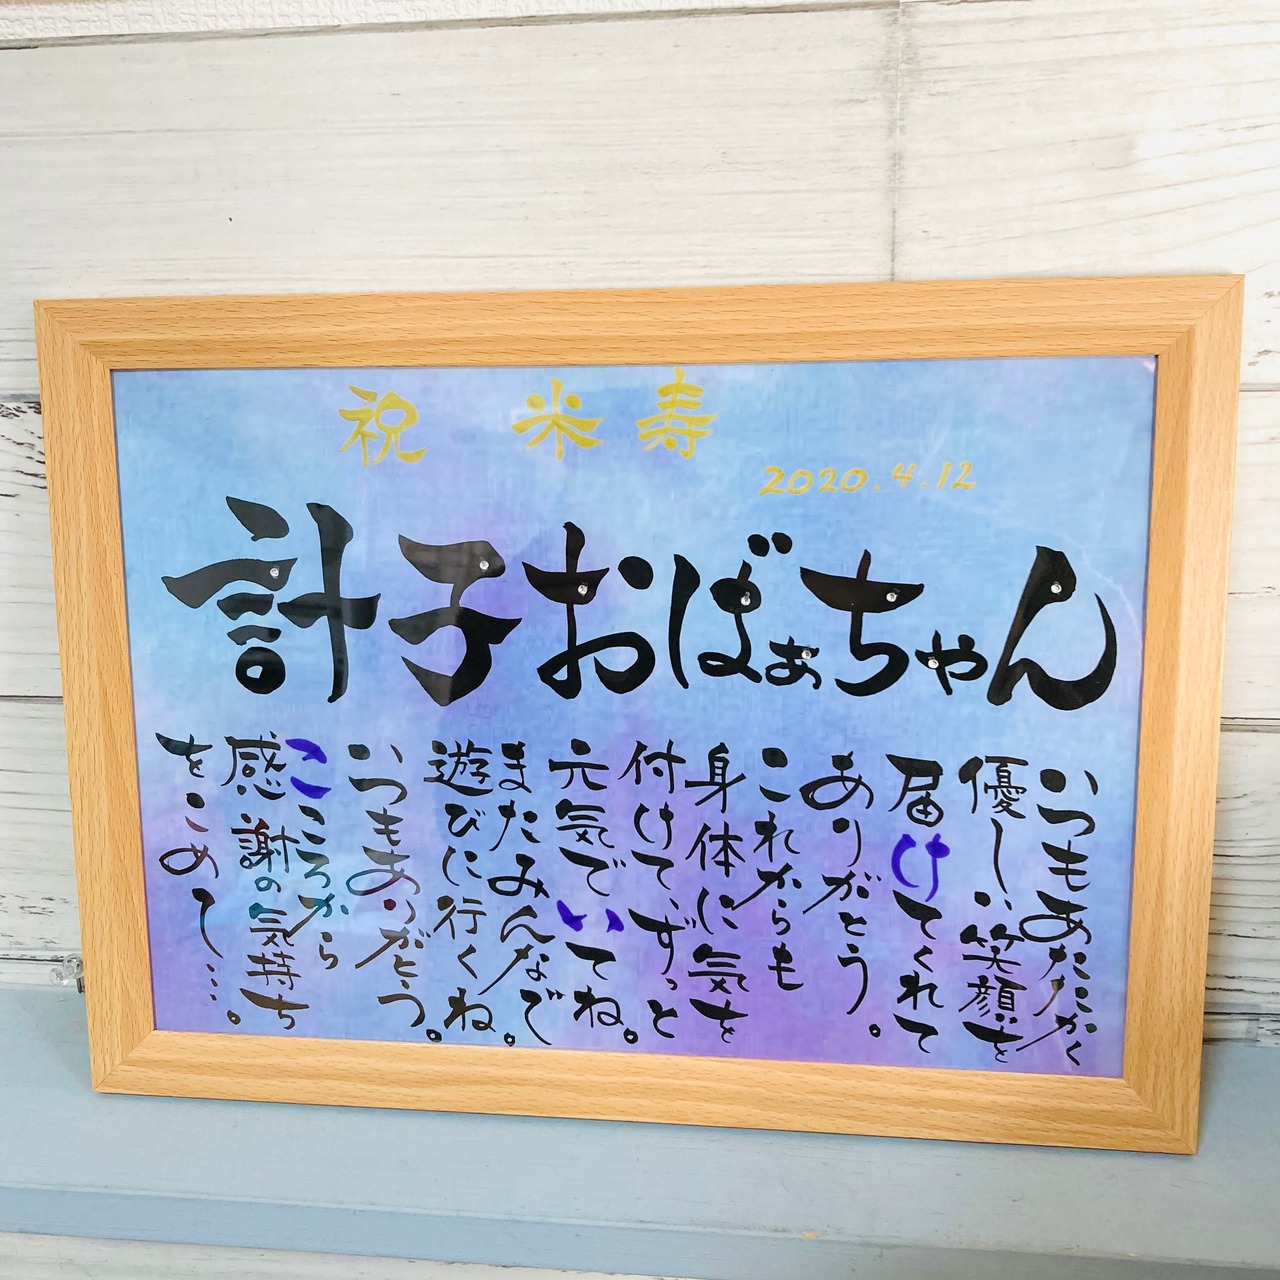 祝 米寿
2020.4.12
計子おばぁちゃん
いつもあたたかく
優しい笑顔を
届けてくれて
ありがとう。
これからも
身体に気を
付けて、ずっと
元気でいてね。
またみんなで
遊びに行くね。
いつもありがとう。
こころから
感謝の気持ち
をこめて…。